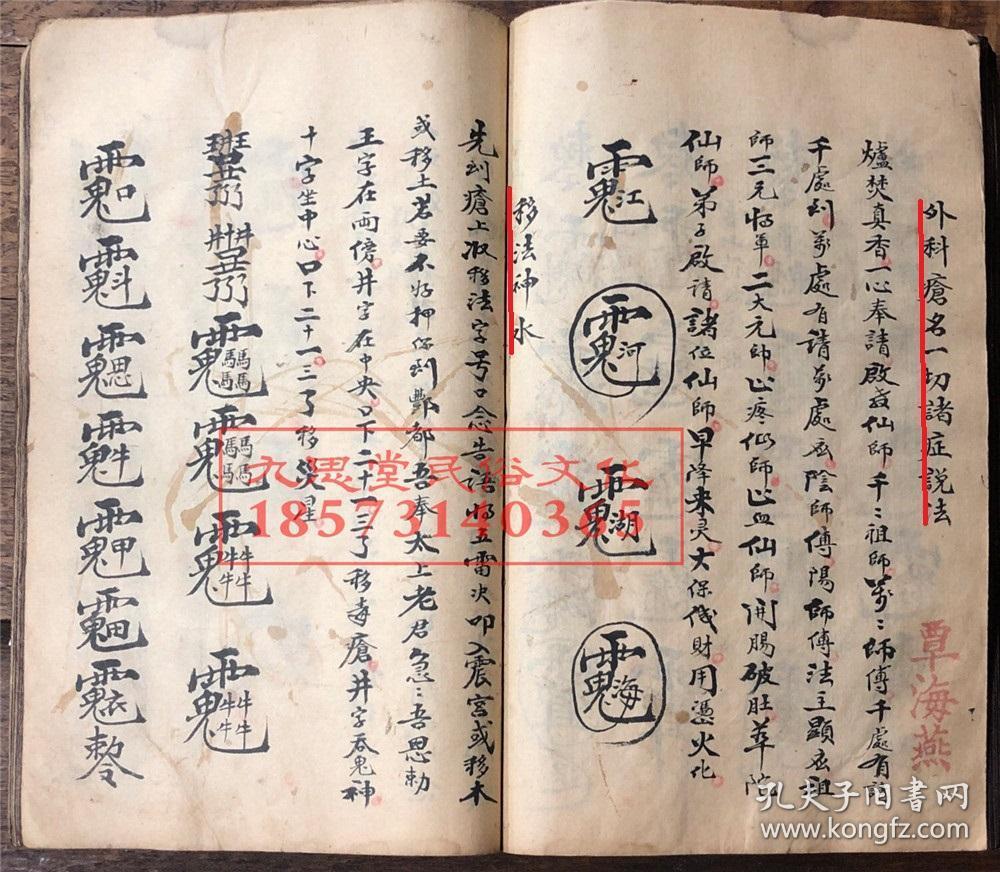 外科瘡名一切諸症説法
爐焚真香一心奉請啟教仙師千〻祖師萬〻師傅千處有請
千處到萬處有請萬處應陰師傅陽師傅法主顯應祖
師三元將軍二大元師止疼仙師止血仙師開腸破肚華陀
仙師弟子啟請諸位仙師早降來灵大保伐財用憑火化
江
河
湖
海
移法神水
先到瘡上取移法字号口念告語將五雷决叩入震宮或移木
或移土若要不好押你到酆都吾奉太上老君急〻吾思勅
王字在両傍井字在中央口下二十一三了移毒瘡井字吞鬼神
十字坐中心口下二十一三了移災星
敕令
覃海燕
九思堂民俗文化
18573140365
孔夫子旧書网
www.kongfz.com